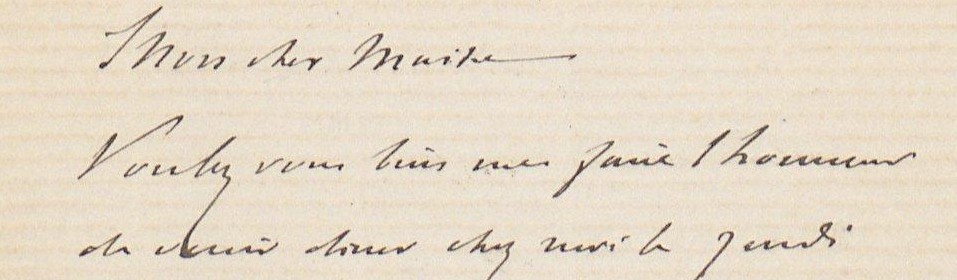 Mon cher Maitre
Voulez vous bien me faire l'honneur
de venir diner chez moi le jeudi